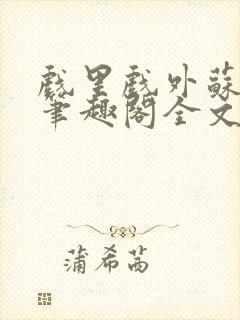 戲里戲外蘇
筆趣閣全文
蒲希茜